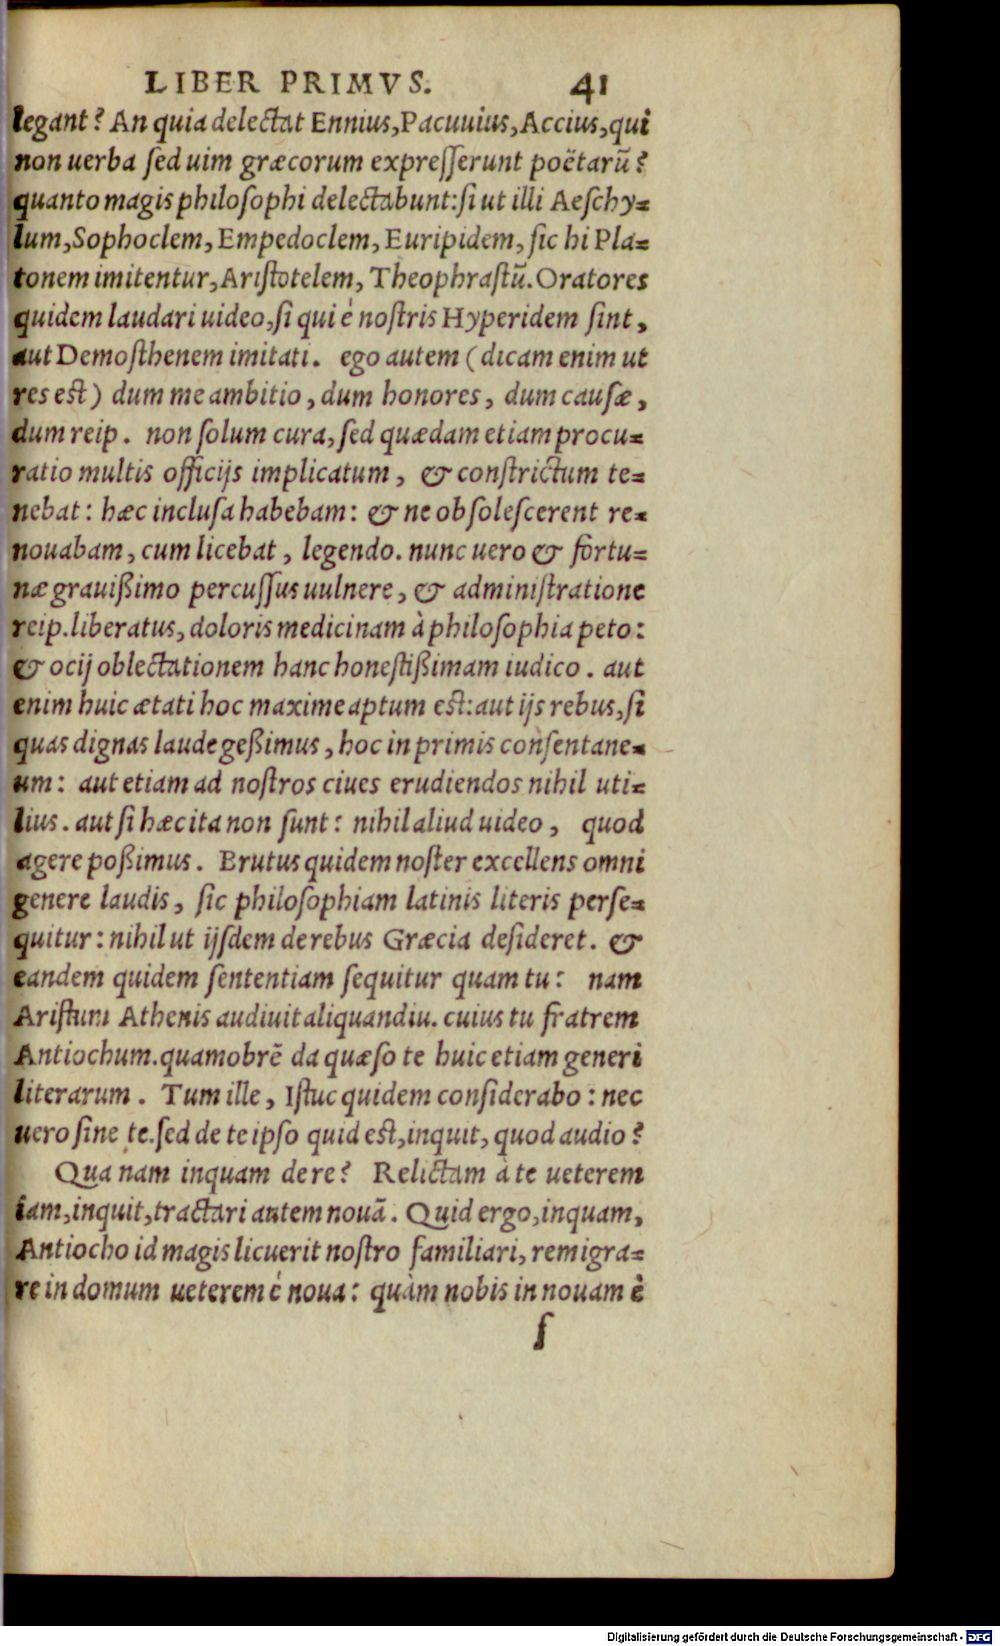 LIBER PRIMVS. 41
legant? An quia delectat Ennius, Pacuuius, Accius, qui
non uerba sed uim græcorum expresserunt poëtarũ?
quanto magis philosophi delectabunt: si ut illi Aeschy=
lum, Sophoclem, Empedoclem, Euripidem, sic hi Pla=
tonem imitentur, Aristotelem, Theophrastũ. Oratores
quidem laudari uideo, si qui é nostris Hyperidem sint,
aut Demosthenem imitati. ego autem (dicam enim ut
res est) dum me ambitio, dum honores, dum causæ,
dum reip. non solum cura, sed quædam etiam procu=
ratio multis officijs implicatum, & constrictum te=
nebat: hæc inclusa habebam: & ne obsolescerent re=
nouabam, cum licebat, legendo. nunc uero & fortu=
næ grauißimo percussus uulnere, & administratione
reip. liberatus, doloris medicinam à philosophia peto:
& ocij oblectationem hanc honestißimam iudico. aut
enim huic ætati hoc maxime aptum est: aut ijs rebus, si
quas dignas laude geßimus, hoc in primis consentane=
um: aut etiam ad nostros ciues erudiendos nihil uti=
lius. aut si hæc ita non sunt: nihil aliud uideo, quod
agere poßimus. Brutus quidem noster excellens omni
genere laudis, sic philosophiam latinis literis perse=
quitur: nihil ut ijsdem de rebus Græcia desideret. &
eandem quidem sententiam sequitur quam tu: nam
Aristum Athenis audiuit aliquandiu. cuius tu fratrem
Antiochum. quamobrẽ da quæso te huic etiam generi
literarum. Tum ille, Istuc quidem considerabo: nec
uero sine te. sed de te ipso quid est, inquit, quod audio?
Qua nam inquam de re? Relictam à te ueterem
iam, inquit, tractari autem nouã. Quid ergo, inquam,
Antiocho id magis licuerit nostro familiari, remigra=
re in domum ueterem é noua: quàm nobis in nouam è
f
Digitalisierung gefördert durch die Deutsche Forschungsgemeinschaft - DFG